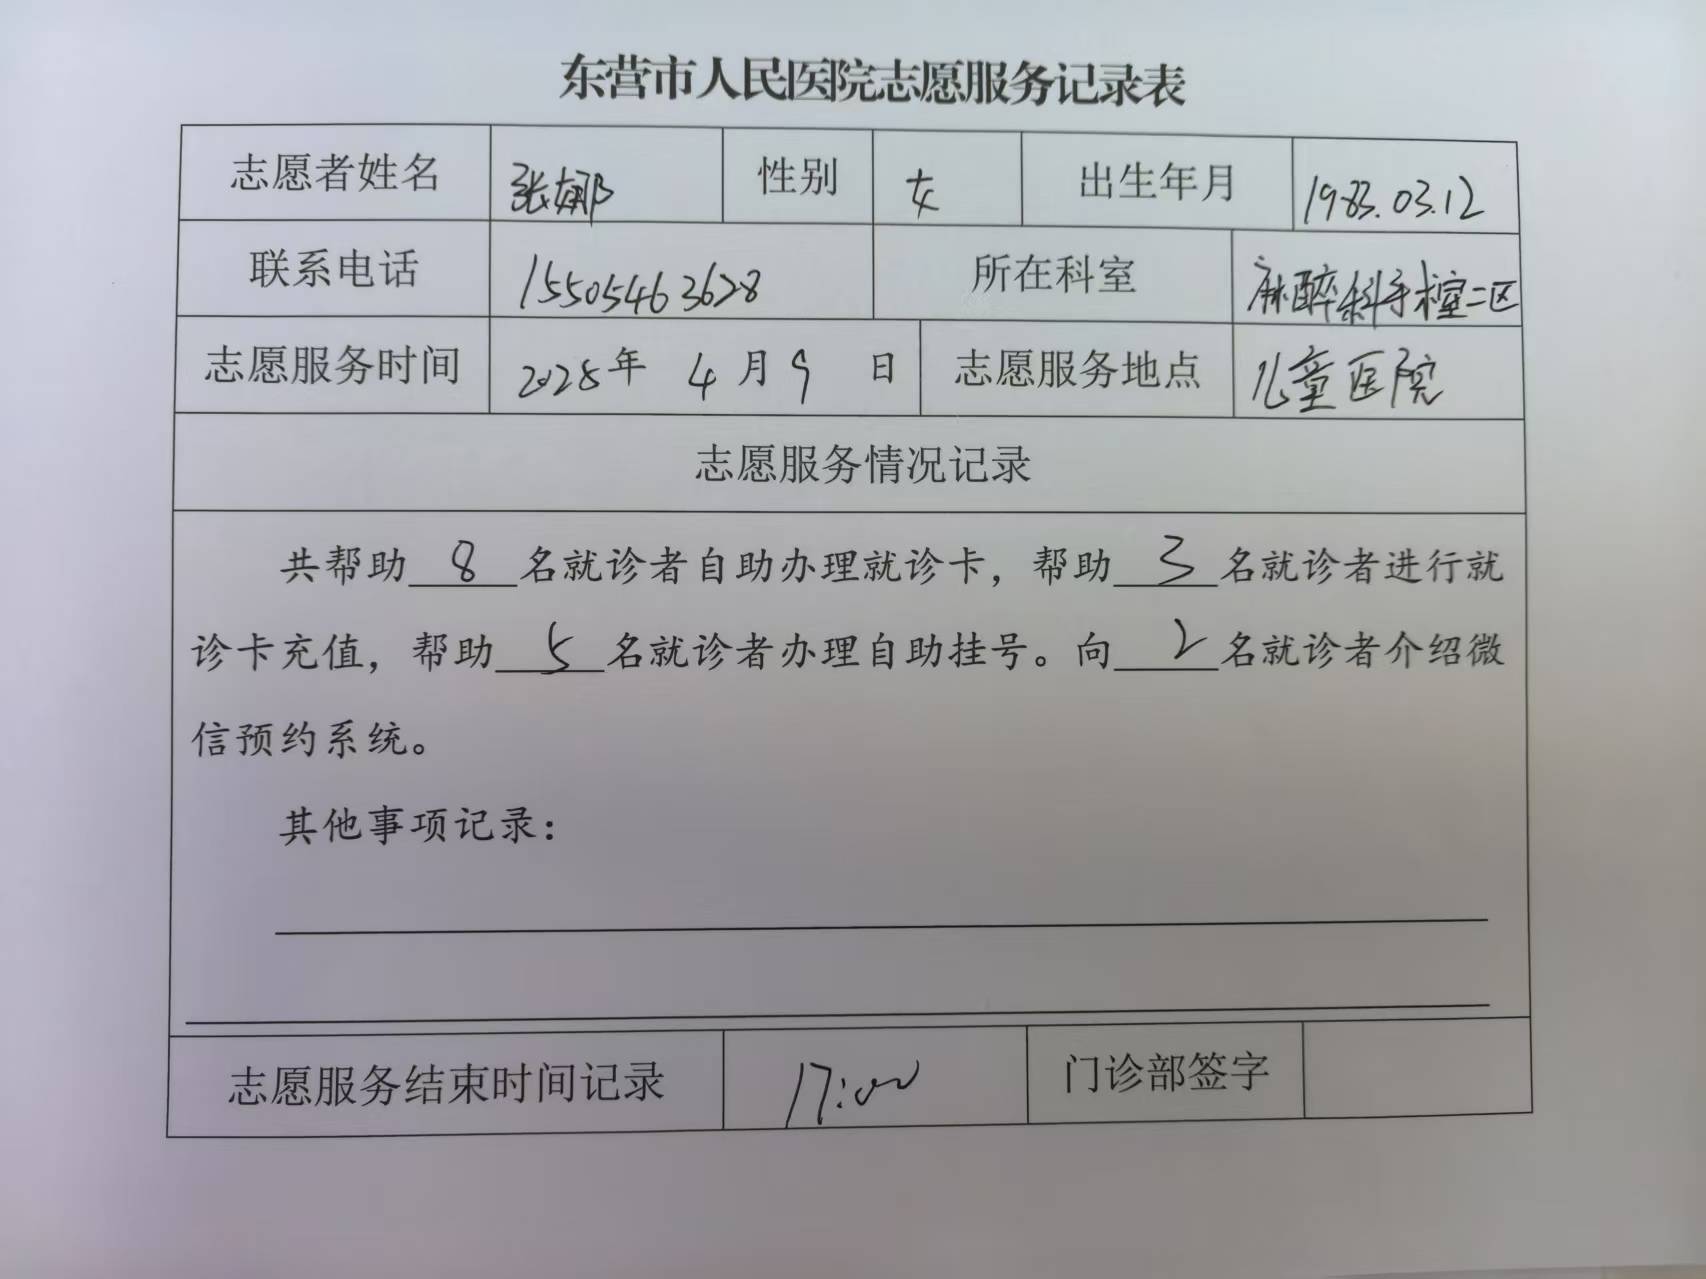 东营市人民医院志愿服务记录表
志愿者姓名 张娜 性别 女 出生年月 1983.03.12
联系电话 15505463628 所在科室 麻醉科手术室二区
志愿服务时间 2025年 4月9日 志愿服务地点 儿童医院
志愿服务情况记录
共帮助8名就诊者自助办理就诊卡，帮助3名就诊者进行就
诊卡充值，帮助5名就诊者办理自助挂号。向2名就诊者介绍微
信预约系统。
其他事项记录：
志愿服务结束时间记录 17:00 门诊部签字